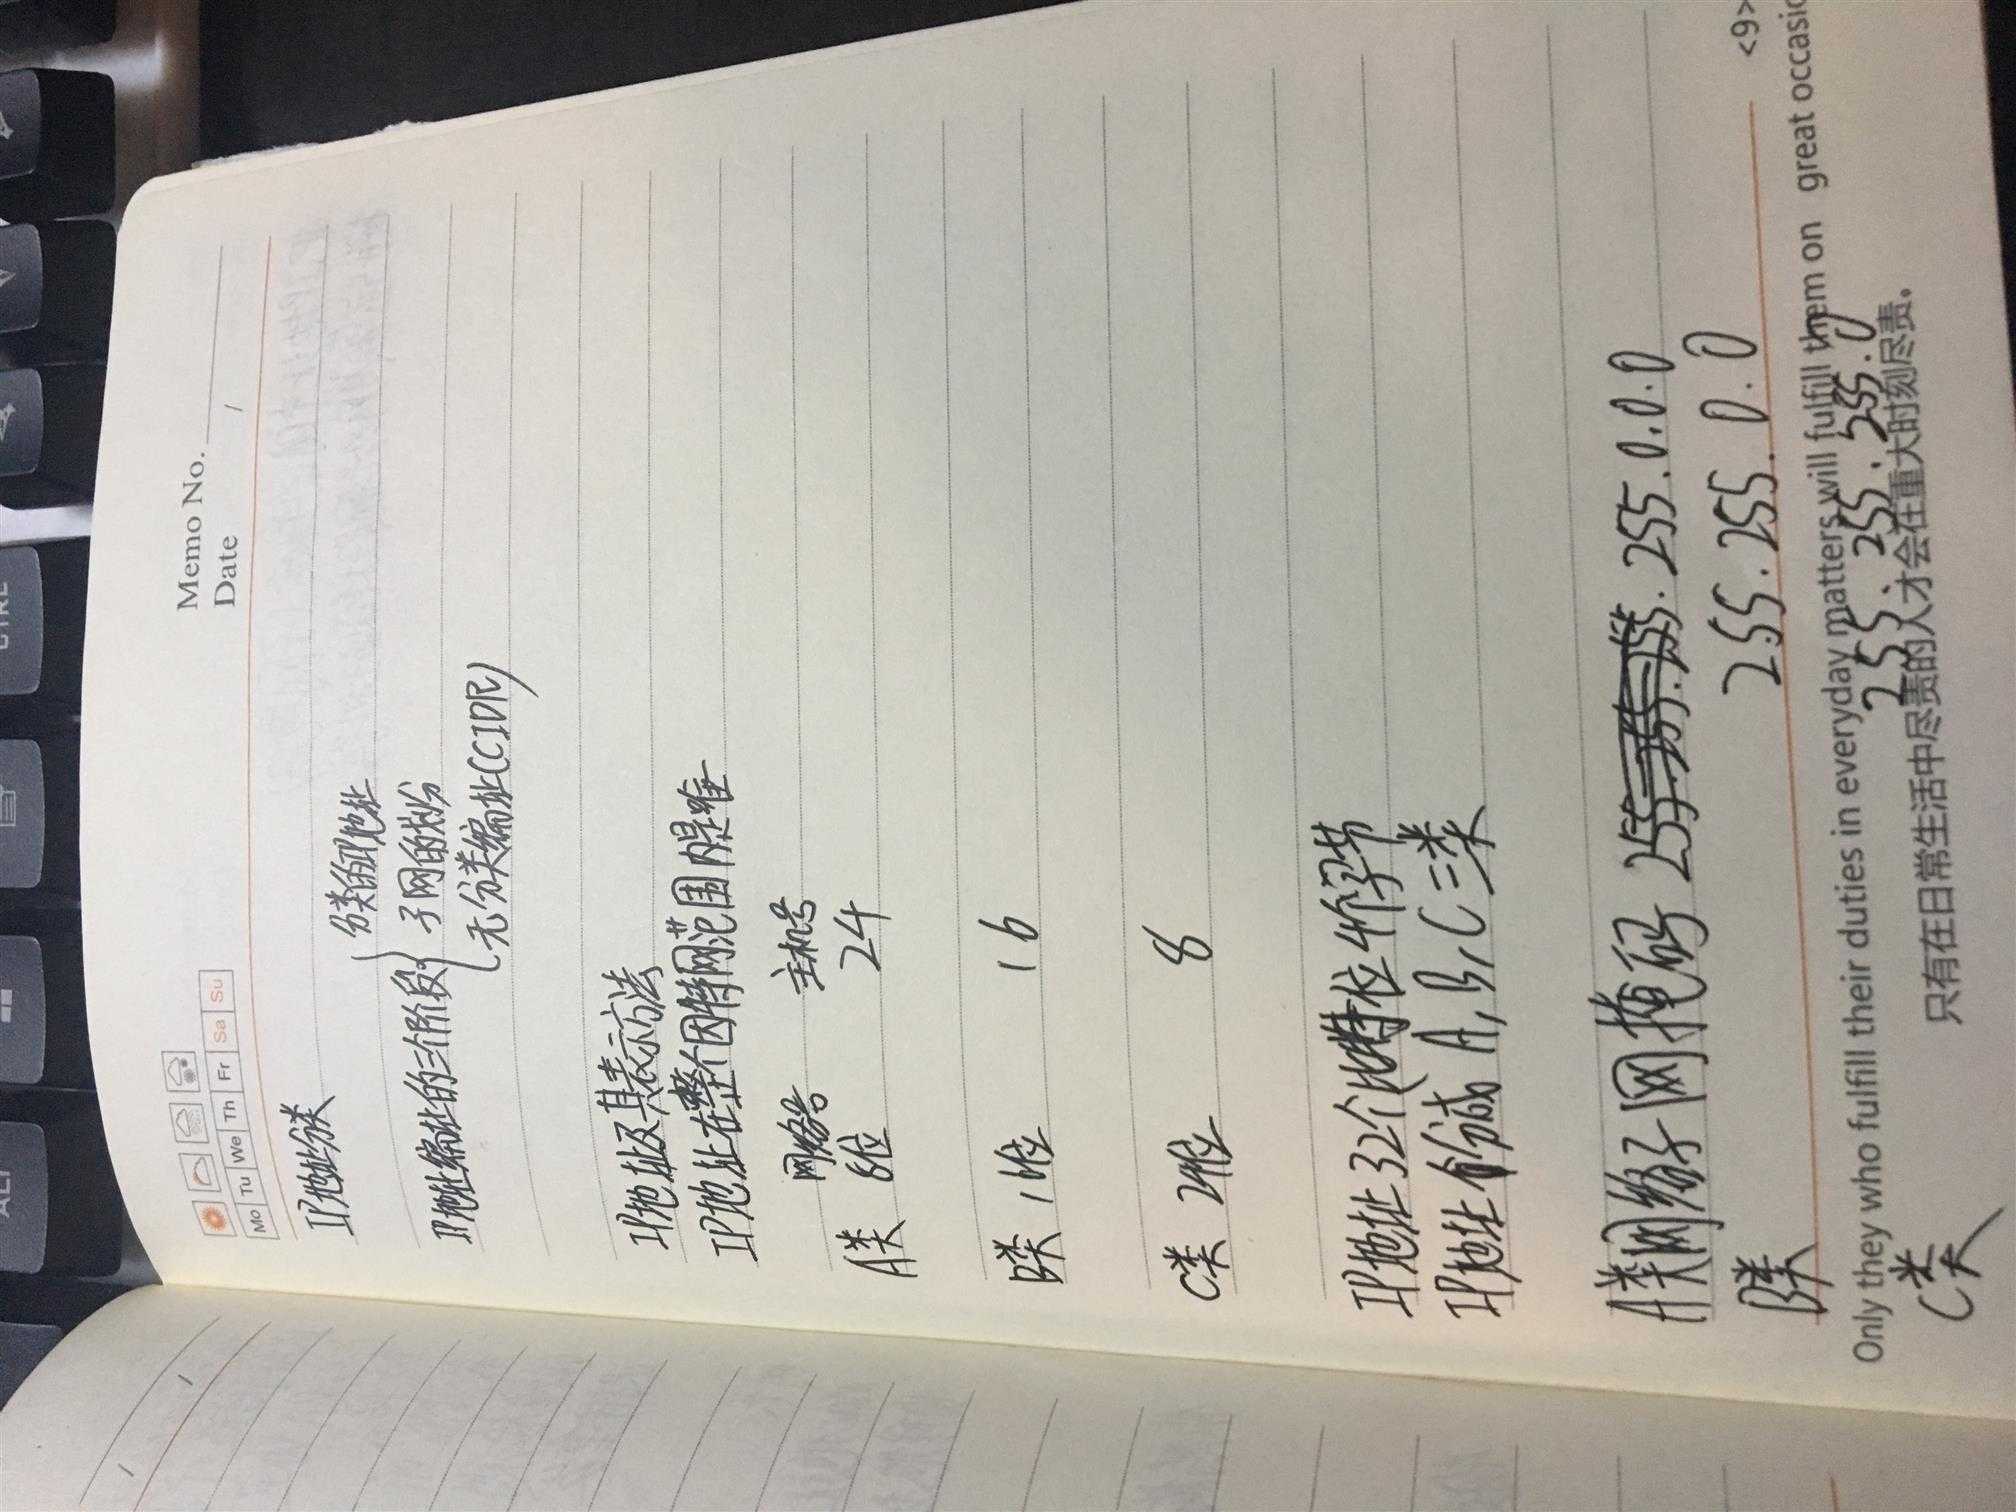 Memo No.
Mo Tu We Th Fr Sa Su
Date / /
IP地址分类
分类的IP地址
IP地址编址的三个阶段 子网的划分
无分类编址(CIDR)
IP地址及其表示方法
IP地址在整个因特网范围内是唯一
网络号 主机号
A类 8位 24
B类 16位 16
C类 24位 8
IP地址32个比特位 4个字节
IP地址分成 A, B, C 三类
A类网络子网掩码 255.0.0.0
B类 255.255.0.0
<9>
Only they who fulfill their duties in everyday matters will fulfill them on great occasio
C类 255.255.255.0
只有在日常生活中尽责的人才会在重大时刻尽责。